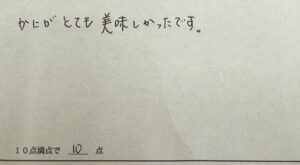 かにが とても 美味しかったです。
10点満点で 10 点